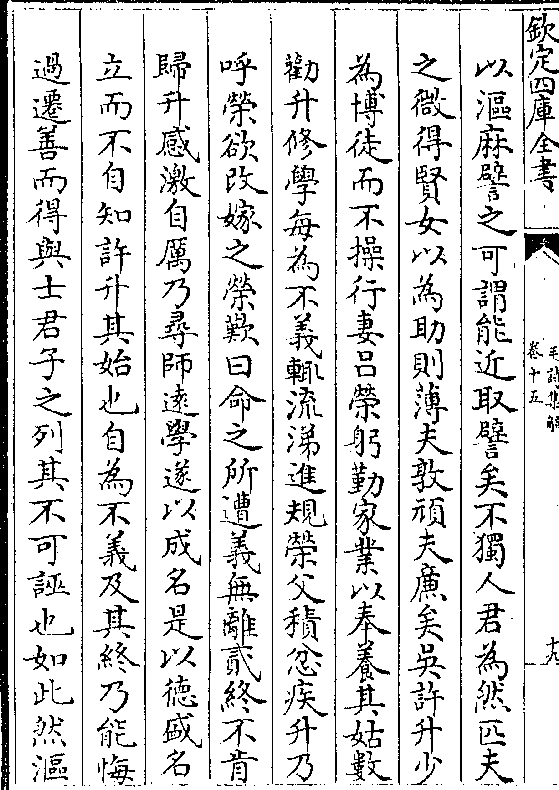 欽定四庫全書
毛詩集解
卷十五
十九
以漚麻譬之可謂能近取譬矣不獨人君為然匹夫
之微得賢女以為助則薄夫敦頑夫廉矣吳許升少
為博徒而不操行妻呂榮躬勤家業以奉養其姑數
勸升修學每為不義輒流涕進規榮父積忿疾升乃
呼榮欲改嫁之榮歎曰命之所遭義無離貳終不肯
歸升感激自厲乃尋師逺學遂以成名是以徳盛名
立而不自知許升其始也自為不義及其終乃能悔
過遷善而得與士君子之列其不可誣也如此然漚